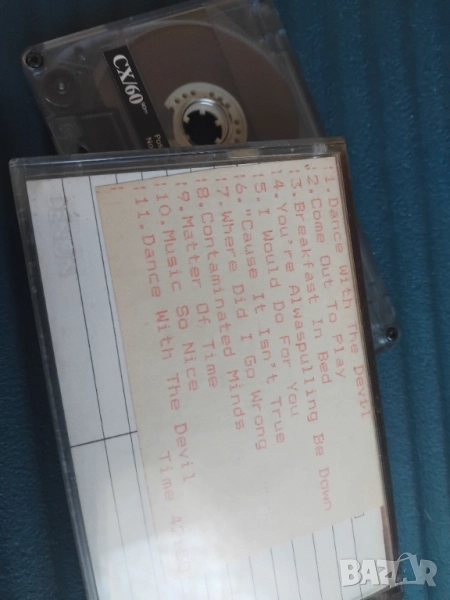 CX/60
:1.Dance With The Devil
:2.Come Out To Play
:3.Breakfast In Bed
:4.You're Alwaspulling Be Down
:5.I Would Do For You
:6."Cause It Isn't True
:7.Where Did I Go Wrong
:8.Contaminated Minds
:9.Matter Of Time
:10.Music So Nice
:11.Dance With The Devil
Time
BAZAR.bg